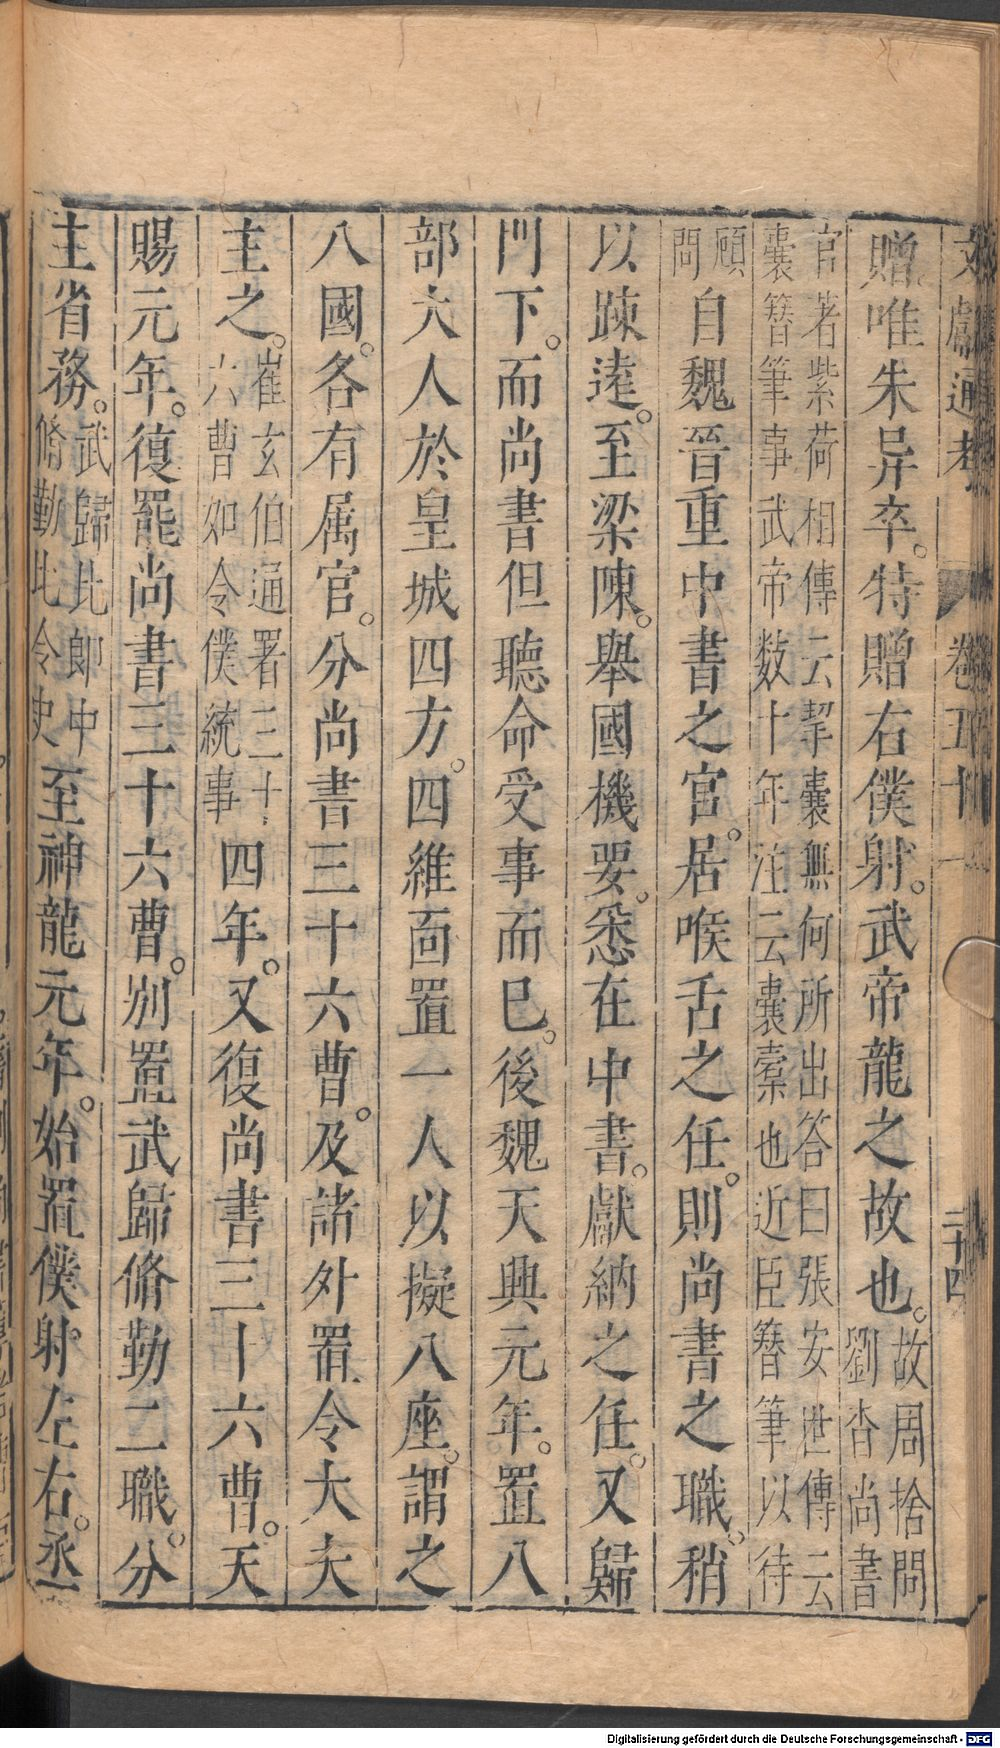 文獻通考 卷五十一 二十四
贈唯朱异卒。特贈右僕射。武帝龍之故也。故周捨問劉杳尚書
官著紫荷相傳云挈囊無何所出答曰張安世傳云
囊簪筆事武帝数十年注云囊橐也近臣簪筆以待
顧問自魏晉重中書之官。居喉舌之任。則尚書之職。稍
以踈遠。至梁陳。舉國機要。悉在中書。獻納之任。又歸
門下。而尚書但聽命受事而已。後魏天興元年。置八
部大人於皇城四方。四維面置一人以擬八座。謂之
八國。各有属官。分尚書三十六曹。及諸外署令大夫
主之。崔玄伯通署三十六曹如令僕統事四年。又復尚書三十六曹。天
賜元年。復罷尚書三十六曹。別置武歸脩勤二職。分
主省務。武歸比郎中脩勤比令史至神龍元年。始置僕射左右。丞
Digitalisierung gefördert durch die Deutsche Forschungsgemeinschaft - DFG